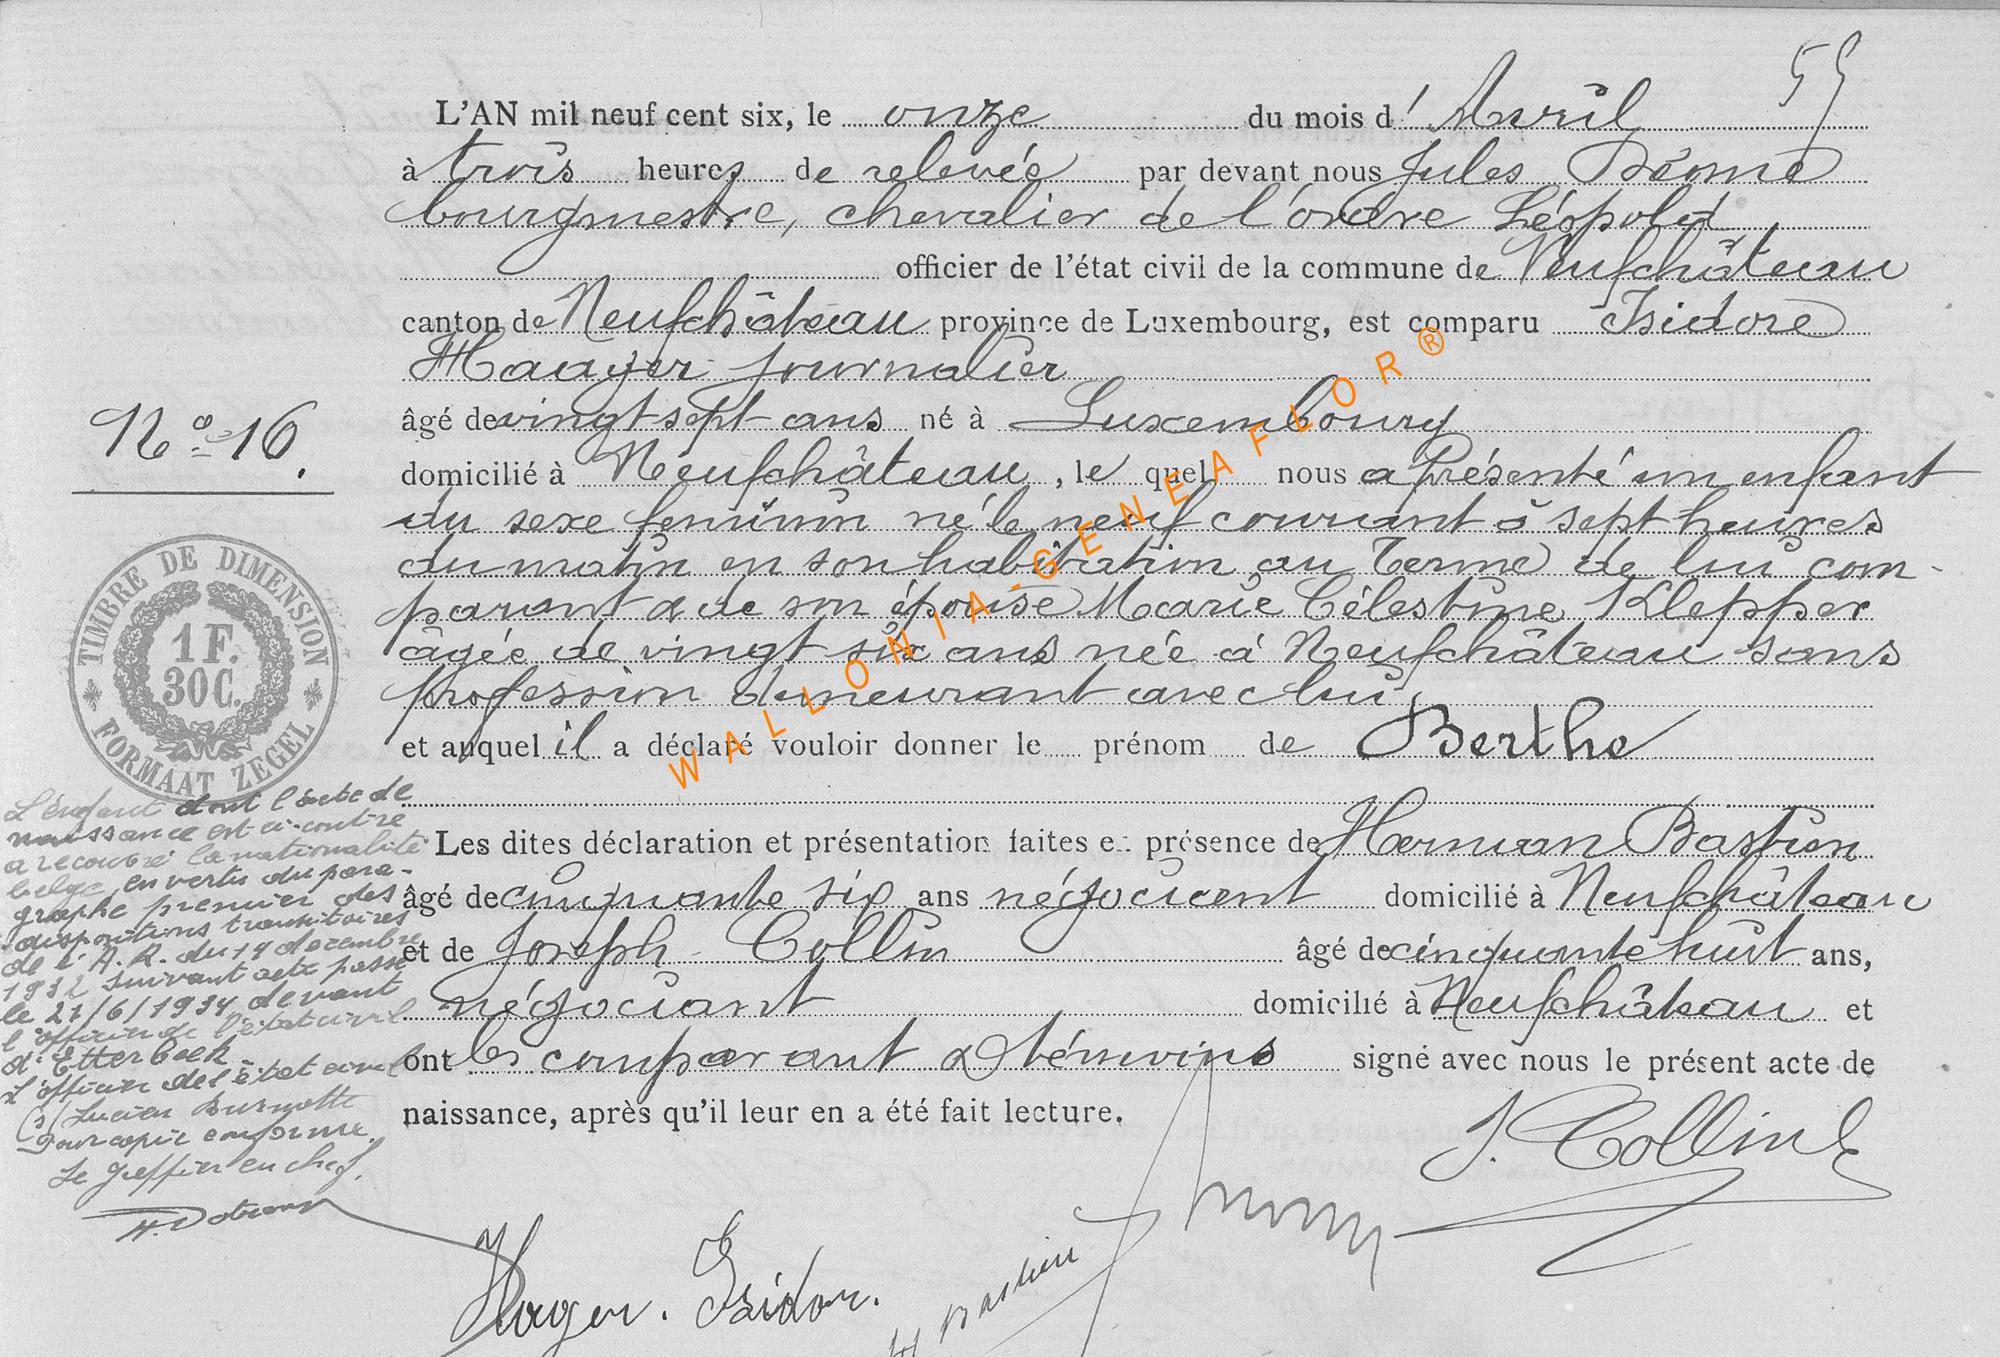 55
L'AN mil neuf cent six, le onze du mois d'Avril
à trois heures de relevée par devant nous Jules
bourgmestre, chevalier de l'ordre Léopold
officier de l'état civil de la commune de Neufchâteau
canton de Neufchâteau province de Luxembourg, est comparu Isidore
Haager journalier
N° 16.
âgé de vingt sept ans né à Luxembourg
domicilié à Neufchâteau, le quel nous a présenté un enfant
du sexe feminin né le neuf courant à sept heures
du matin en son habitation au Terme de lui com-
parant & de son épouse Marie Célestine Klepper
âgée de vingt six ans née à Neufchâteau sans
profession demeurant avec lui
et auquel il a déclaré vouloir donner le prénom de Berthe
TIMBRE DE DIMENSION
1 F.
30 C.
FORMAAT ZEGEL
WALLONIA-GENEAFLOR®
Les dites déclaration et présentation faites en présence de Herman Bastien
âgé de cinquante six ans négociant domicilié à Neufchâteau
et de Joseph Collin âgé de cinquante huit ans,
négociant domicilié à Neufchâteau et
ont les comparant & témoins signé avec nous le présent acte de
naissance, après qu'il leur en a été fait lecture.
L'enfant dont l'acte de
naissance est ci-contre
a recouvré la nationalité
belge en vertu du para-
graphe premier des
dispositions transitoires
de l'A. R. du 14 décembre
1932 suivant acte passé
le 27/6/1934 devant
l'officier de l'état civil
d'Etterbeek.
L'officier de l'état civil
(s) Lucien Burnotte
Pour copie conforme.
Le greffier en chef,
J. Collin
Hager. Isidor.
H Bastien